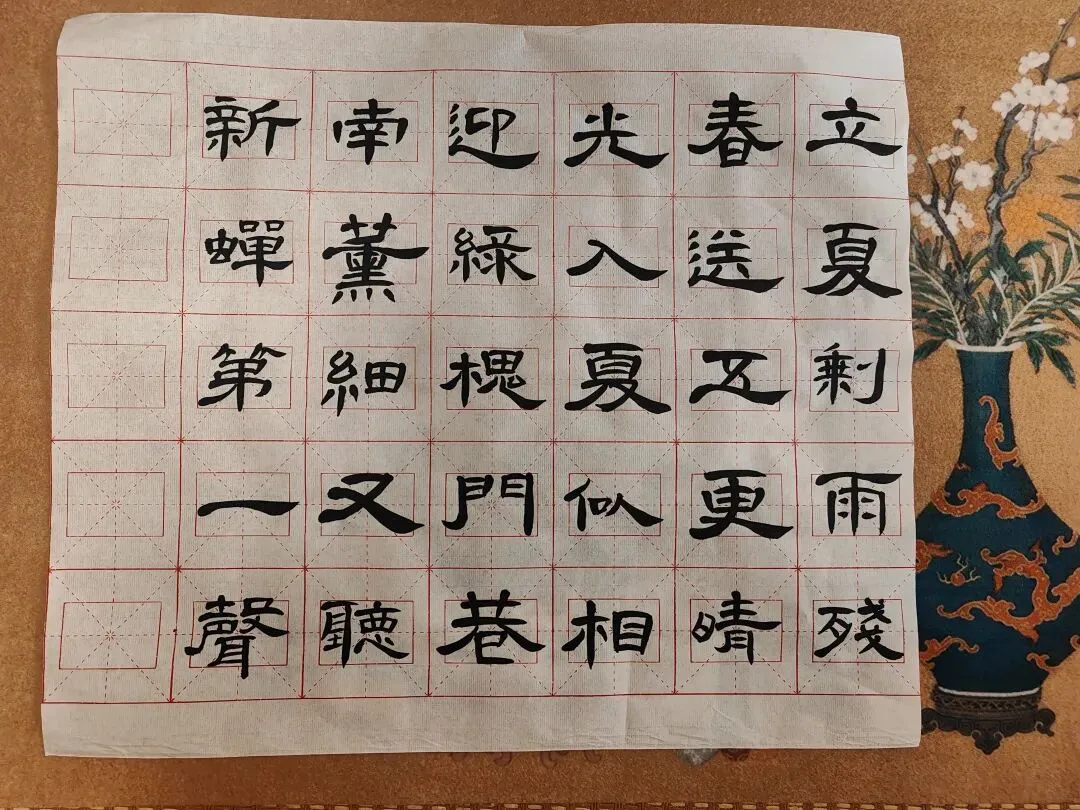 立夏剩雨殘
春送五更晴
光入夏似相
迎綠槐門巷
南薰細又聽
新蟬第一聲